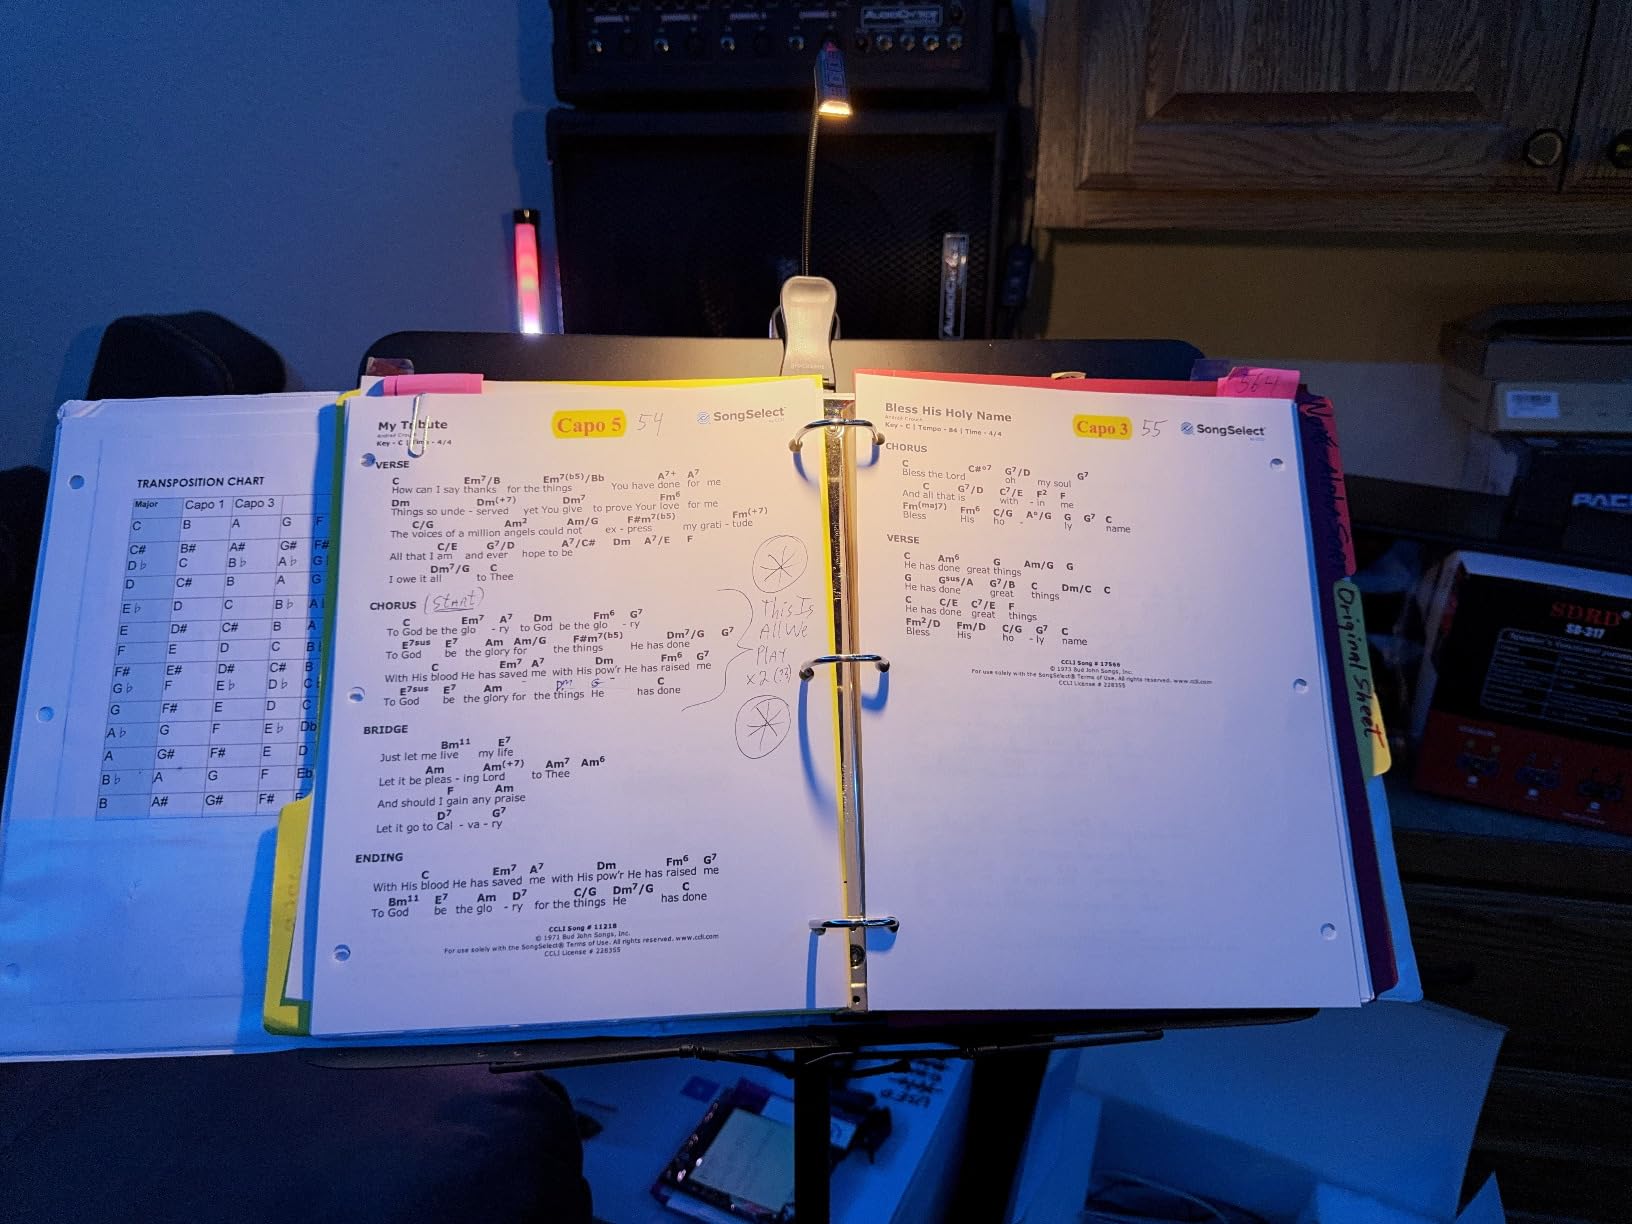 AUDIOCYTER
TRANSPOSITION CHART
Major Capo 1 Capo 3
C B A G F
C# B# A# G# F#
D♭ C B♭ A♭ G
D C# B A G
E♭ D C B♭ A
E D# C# B A
F E D C B
F# E# D# C# B
G♭ F E♭ D♭ C
G F# E D C
A♭ G F E♭ Db
A G# F# E D
B♭ A G F Eb
B A# G# F# E
My Tribute
Andraé Crouch
Key - C | Time - 4/4
Capo 5 54
SongSelect
VERSE
C Em7/B Em7(b5)/Bb A7+ A7
How can I say thanks for the things You have done for me
Dm Dm(+7) Dm7 Fm6
Things so unde - served yet You give to prove Your love for me
C/G Am2 Am/G F#m7(b5) Fm(+7)
The voices of a million angels could not ex - press my grati - tude
C/E G7/D A7/C# Dm A7/E F
All that I am and ever hope to be
Dm7/G C
I owe it all to Thee
CHORUS (START)
C Em7 A7 Dm Fm6 G7
To God be the glo - ry to God be the glo - ry
E7sus E7 Am Am/G F#m7(b5) Dm7/G G7
To God be the glory for the things He has done
C Em7 A7 Dm Fm6 G7
With His blood He has saved me with His pow'r He has raised me
E7sus E7 Am Dm G C
To God be the glory for the things He has done
This Is
All We
PLAY
x2 (?)
BRIDGE
Bm11 E7
Just let me live my life
Am Am(+7) Am7 Am6
Let it be pleas - ing Lord to Thee
F Am
And should I gain any praise
D7 G7
Let it go to Cal - va - ry
ENDING
C Em7 A7 Dm Fm6 G7
With His blood He has saved me with His pow'r He has raised me
Bm11 E7 Am D7 C/G Dm7/G C
To God be the glo - ry for the things He has done
CCLI Song # 11218
© 1971 Bud John Songs, Inc.
For use solely with the SongSelect® Terms of Use. All rights reserved. www.ccli.com
CCLI License # 228355
Bless His Holy Name
Andraé Crouch
Key - C | Tempo - 84 | Time - 4/4
Capo 3 55
SongSelect
CHORUS
C C#o7 G7/D G7
Bless the Lord oh my soul
C G7/D C7/E F2 F
And all that is with - in me
Fm(maj7) Fm6 C/G Ao/G G G7 C
Bless His ho - ly name
VERSE
C Am6 G Am/G G
He has done great things
G Gsus/A G7/B C Dm/C C
He has done great things
C C/E C7/E F
He has done great things
Fm2/D Fm/D C/G G7 C
Bless His ho - ly name
CCLI Song # 17566
© 1973 Bud John Songs, Inc.
For use solely with the SongSelect® Terms of Use. All rights reserved. www.ccli.com
CCLI License # 228355
Original Sheet
SDRD
SD-317
USED